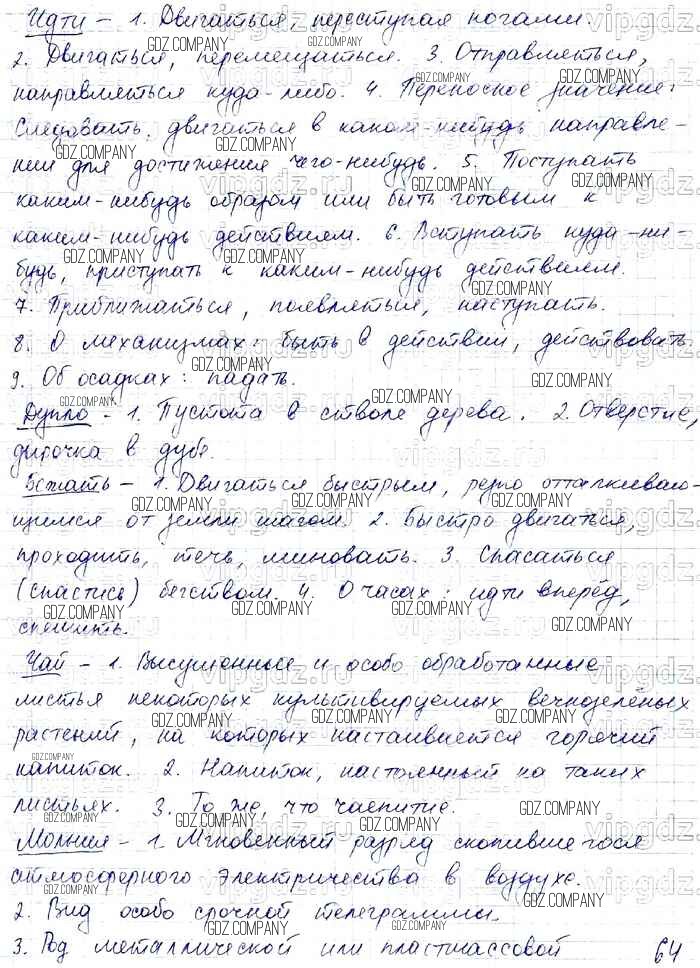 Идти – 1. Двигаться, переступая ногами
2. Двигаться, перемещаться. 3. Отправляться,
направляться куда-либо. 4. Переносное значение:
следовать, двигаться в каком-нибудь направле-
нии для достижения чего-нибудь. 5. Поступать
каким-нибудь образом или быть готовым к
каким-нибудь действиям. 6. Вступать куда-ни-
будь, приступать к каким-нибудь действием.
7. Приближаться, появляться, наступать.
8. О механизмах: быть в действии, действовать
9. Об осадках: падать.
Дупло – 1. Пустота в стволе дерева. 2. Отверстие,
дырочка в зубе.
Бежать – 1. Двигаться быстрым, резко отталкиваю-
щимся от земли шагом. 2. Быстро двигаться,
проходить, течь, миновать. 3. Спасаться
(спастись) бегством. 4. О часах: идти вперёд,
спешить.
Чай – 1. Высушенные и особо обработанные
листья некоторых культивируемых вечнозелёных
растений, на которых настаивается горячий
напиток. 2. Напиток, настоянный на таких
листьях. 3. То же, что чаепитие.
Молния – 1. Мгновенный разряд скопившегося
атмосферного электричества в воздухе.
2. Вид особо срочной телеграммы.
3. Род металлической или пластмассовой 64